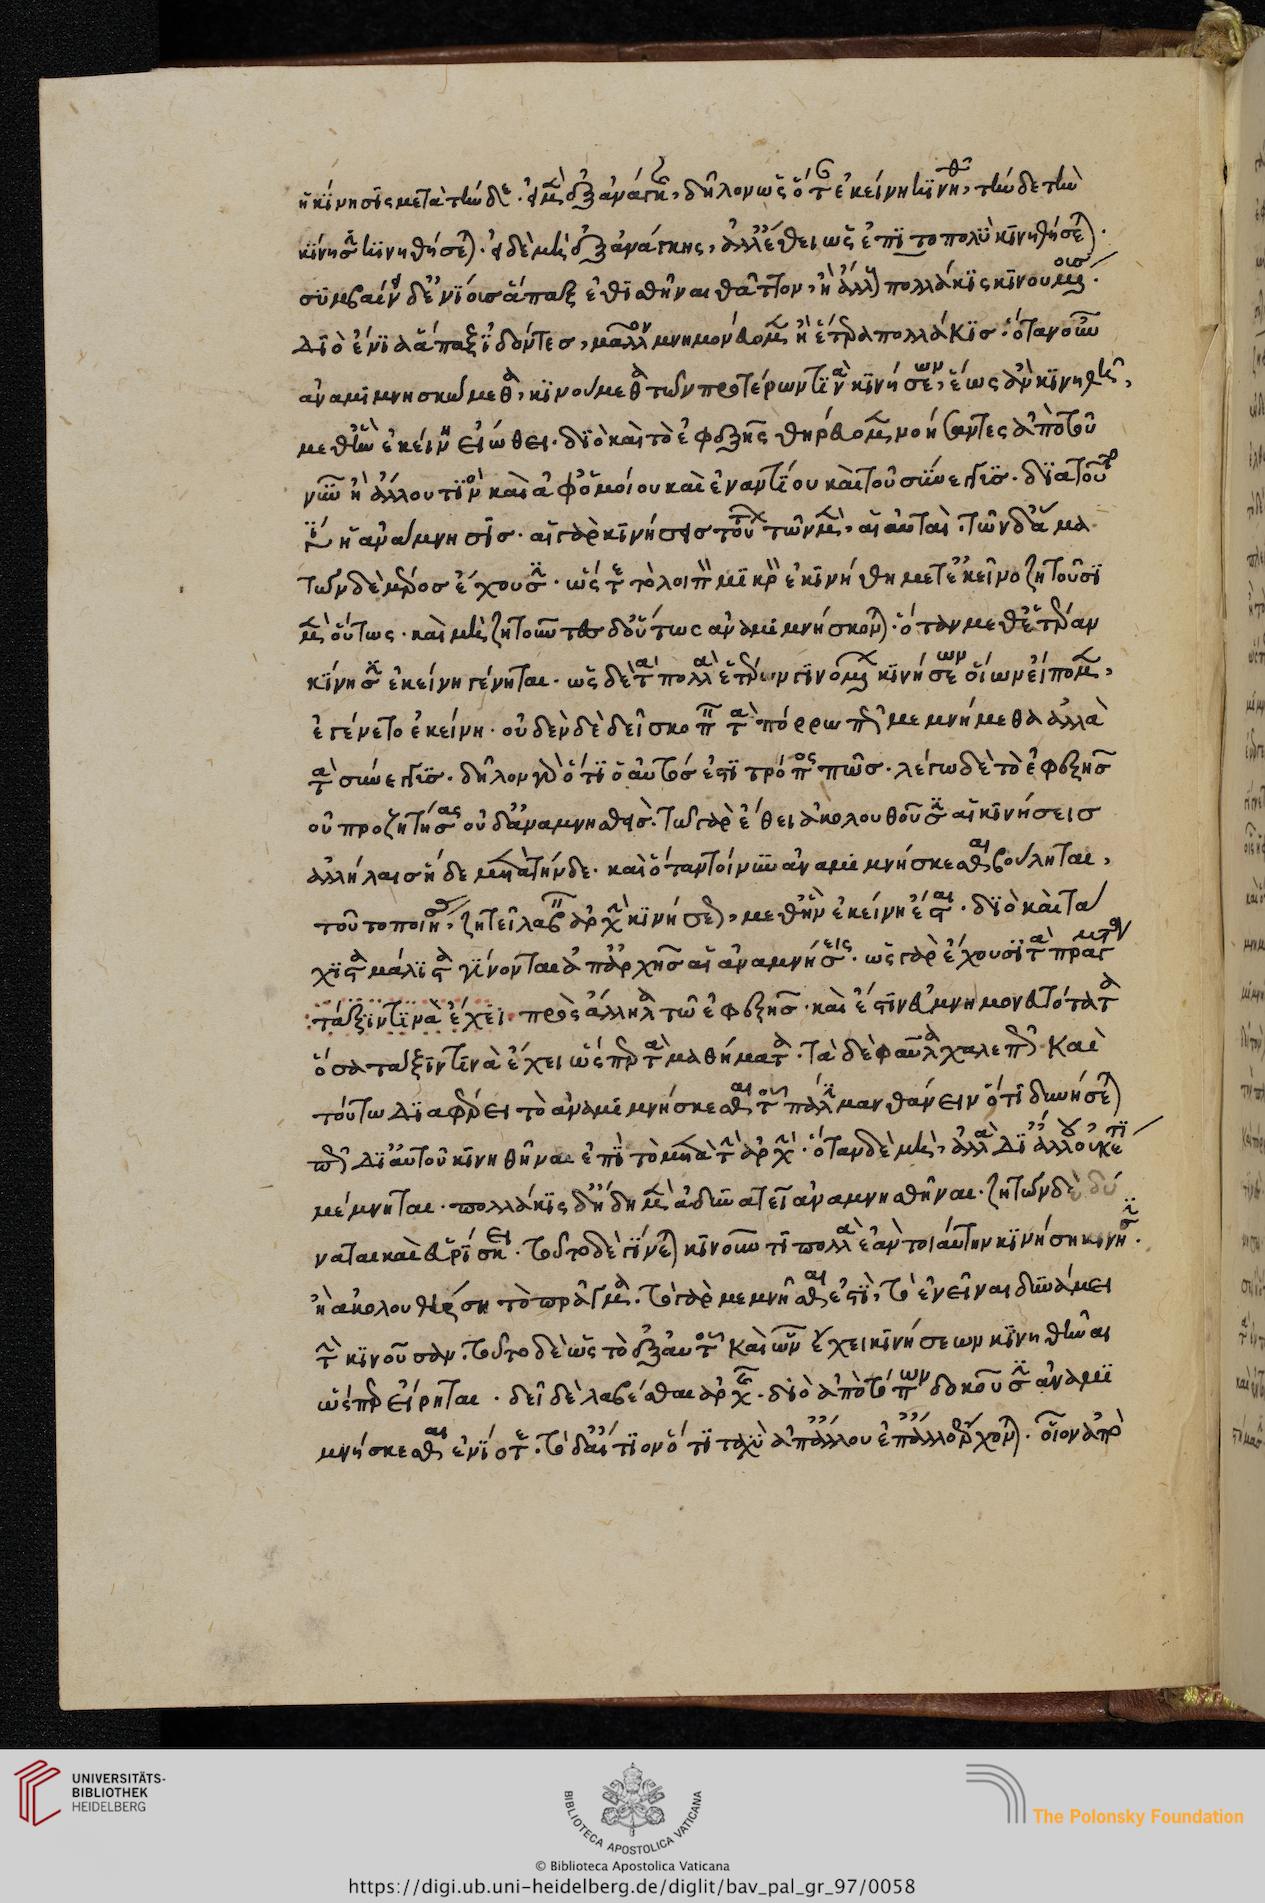 ἡ κίνησις μετὰ τήνδε. εἰ μὲν ἐξ ἀνάγκης, δῆλον ὡς ὅταν ἐκείνην κινηθῇ, τήνδε τὴν
κίνησιν κινηθήσεται. εἰ δὲ μὴ ἐξ ἀνάγκης, ἀλλ' ἔθει ὡς ἐπὶ τὸ πολὺ κινηθήσεται.
συμβαίνει δ' ἐνίοις ἅπαξ ἐθισθῆναι θᾶττον, ἢ ἄλλοις πολλάκις κινουμένοις.
διὸ ἔνια ἅπαξ ἰδόντες, μᾶλλον μνημονεύομεν ἢ ἕτερα πολλάκις. ὅταν οὖν
ἀναμιμνησκώμεθα, κινούμεθα τῶν προτέρων τινὰ κινήσεων, ἕως ἂν κινηθῶ
μεν μεθ' ἣν ἐκείνη εἴωθει. διὸ καὶ τὸ ἐφεξῆς θηρεύομεν νοήσαντες ἀπὸ τοῦ
νῦν ἢ ἄλλου τινὸς καὶ ἀφ' ὁμοίου καὶ ἐναντίου καὶ τοῦ σύνεγγυς. διὰ τοῦτο
γίνεται ἡ ἀνάμνησις. αἱ γὰρ κινήσεις τούτων τῶν μὲν, αἱ αὐταὶ. τῶν δ' ἅμα
τῶν δὲ μέρος ἔχουσιν. ὥστε τὸ λοιπὸν μικρὸν ὃ ἐκινήθη μετ' ἐκεῖνο ζητοῦσι
μὲν οὕτως. καὶ μὴ ζητοῦντες δ' οὕτως ἀναμιμνήσκονται. ὅταν μεθ' ἑτέραν
κίνησιν ἐκείνη γένηται. ὡς δὲ τὰ πολλὰ ἑτέρων γινομένων κινήσεων οἵων εἴπομεν,
ἐγένετο ἐκείνη. οὐδὲν δὲ δεῖ σκοπεῖν τὰ πόρρω πῶς μεμνήμεθα ἀλλὰ
τὰ σύνεγγυς. δῆλον γὰρ ὅτι ὁ αὐτός ἐστι τρόπος πῶς. λέγω δὲ τὸ ἐφεξῆς
οὐ προζητήσας οὐδ' ἀναμνησθείς. τῷ γὰρ ἔθει ἀκολουθοῦσιν αἱ κινήσεις
ἀλλήλαις ἥδε μετὰ τήνδε. καὶ ὅταν τοίνυν ἀναμιμνήσκεσθαι βούληται,
τοῦτο ποιήσει, ζητεῖ λαβεῖν ἀρχὴν κινήσεως, μεθ' ἣν ἐκείνη ἔσται. διὸ καὶ τά
χιστα μάλιστα γίνονται ἀπ' ἀρχῆς αἱ ἀναμνήσεις. ὡς γὰρ ἔχουσι τὰ πράγματα
τάξιν τινὰ ἔχει. πρὸς ἄλληλα τῷ ἐφεξῆς. καὶ ἔστιν εὐμνημονευτότατα
ὅσα τάξιν τινὰ ἔχει ὥσπερ τὰ μαθήματα. τὰ δὲ φαῦλα χαλεπῶς καὶ
τούτῳ διαφέρει τὸ ἀναμιμνήσκεσθαι τοῦ πάλιν μανθάνειν ὅτι δυνήσεται
πως δι' αὑτοῦ κινηθῆναι ἐπὶ τὸ μετὰ τὴν ἀρχήν. ὅταν δὲ μὴ, ἀλλὰ δι' ἄλλου οὐκέτι
μέμνηται. πολλάκις δ' ἤδη μὲν ἀδυνατεῖ ἀναμνησθῆναι. ζητῶν δὲ δύ
ναται καὶ εὑρίσκει. τοῦτο δὲ γίνεται κινοῦντι πολλὰ ἐὰν τοιαύτην κίνησιν κινήσῃ.
ᾗ ἀκολουθήσει τὸ πρᾶγμα. τὸ γὰρ μεμνῆσθαι ἐστὶ, τὸ ἐνεῖναι δυνάμει
τὴν κινοῦσαν. τοῦτο δὲ ὡς τὸ ἐξ αὑτοῦ καὶ ὧν ἔχει κινήσεων κινηθῆναι
ὥσπερ εἴρηται. δεῖ δὲ λαβέσθαι ἀρχῆς. διὸ ἀπὸ τόπων δοκοῦσιν ἀναμι
μνήσκεσθαι ἐνίοτε. τὸ δ' αἴτιον ὅτι ταχὺ ἀπ' ἄλλου ἐπ' ἄλλο ἔρχονται. οἷον ἀπὸ
UNIVERSITÄTS-
BIBLIOTHEK
HEIDELBERG
BIBLIOTECA APOSTOLICA VATICANA
The Polonsky Foundation
© Biblioteca Apostolica Vaticana
https://digi.ub.uni-heidelberg.de/diglit/bav_pal_gr_97/0058